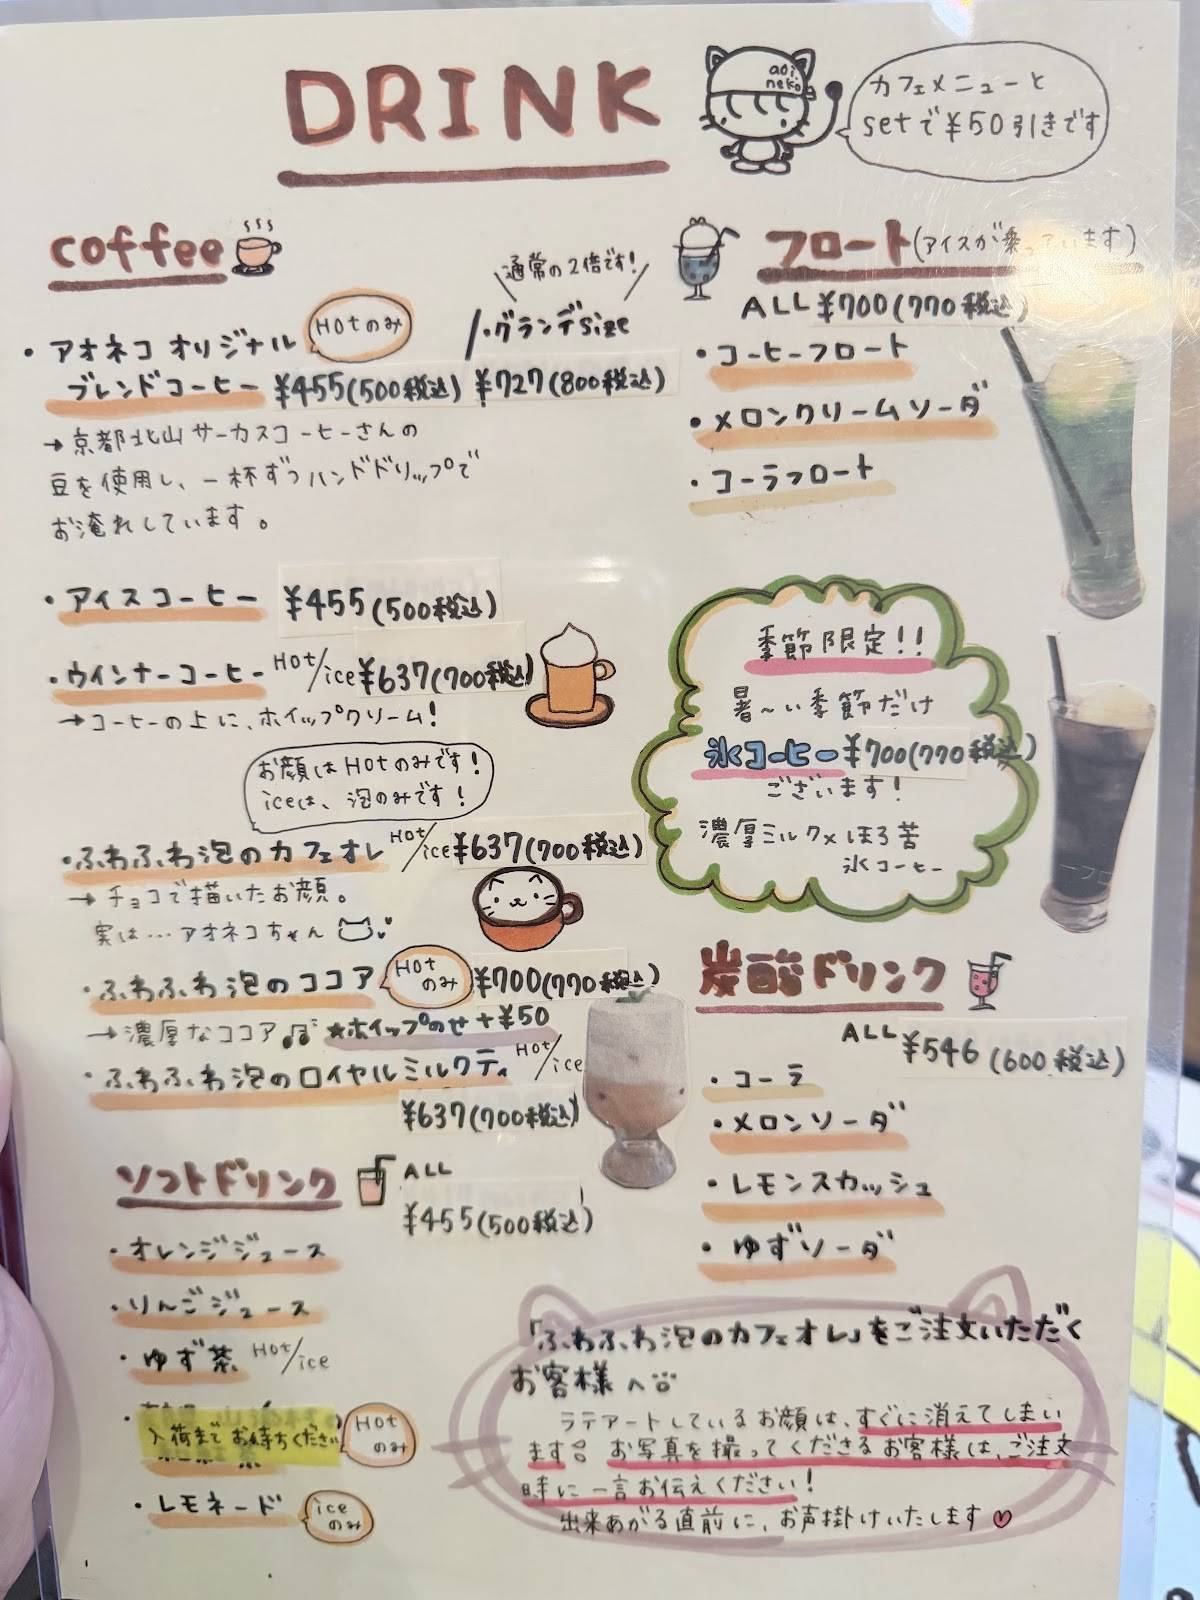 DRINK
aoi
neko
カフェメニューと
setで¥50引きです
coffee
・アオネコ オリジナル
Hotのみ
ブレンドコーヒー ¥455(500税込)
通常の2倍です!
・グランデsize
¥727(800税込)
→京都北山サーカスコーヒーさんの
豆を使用し、一杯ずつハンドドリップで
お淹れしています。
・アイスコーヒー ¥455(500税込)
・ウインナーコーヒー Hot/ice ¥637(700税込)
→コーヒーの上に、ホイップクリーム!
お顔はHotのみです!
iceは、泡のみです!
・ふわふわ泡のカフェオレ Hot/ice ¥637(700税込)
→チョコで描いたお顔。
実は…アオネコちゃん
・ふわふわ泡のココア Hotのみ ¥700(770税込)
→濃厚なココア♫ ★ホイップのせ+¥50
・ふわふわ泡のロイヤルミルクティ Hot/ice
¥637(700税込)
ソフトドリンク ALL
¥455(500税込)
・オレンジジュース
・りんごジュース
・ゆず茶 Hot/ice
入荷までお待ちください Hotのみ
・レモネード iceのみ
フロート(アイスが乗っています)
ALL ¥700(770税込)
・コーヒーフロート
・メロンクリームソーダ
・コーラフロート
季節限定!!
暑〜い季節だけ
氷コーヒー ¥700(770税込)
ございます!
濃厚ミルク×ほろ苦
氷コーヒー
炭酸ドリンク
ALL ¥546(600税込)
・コーラ
・メロンソーダ
・レモンスカッシュ
・ゆずソーダ
「ふわふわ泡のカフェオレ」をご注文いただく
お客様へ
ラテアートしているお顔は、すぐに消えてしまい
ます。お写真を撮ってくださるお客様は、ご注文
時に一言お伝えください!
出来あがる直前に、お声掛けいたします♡